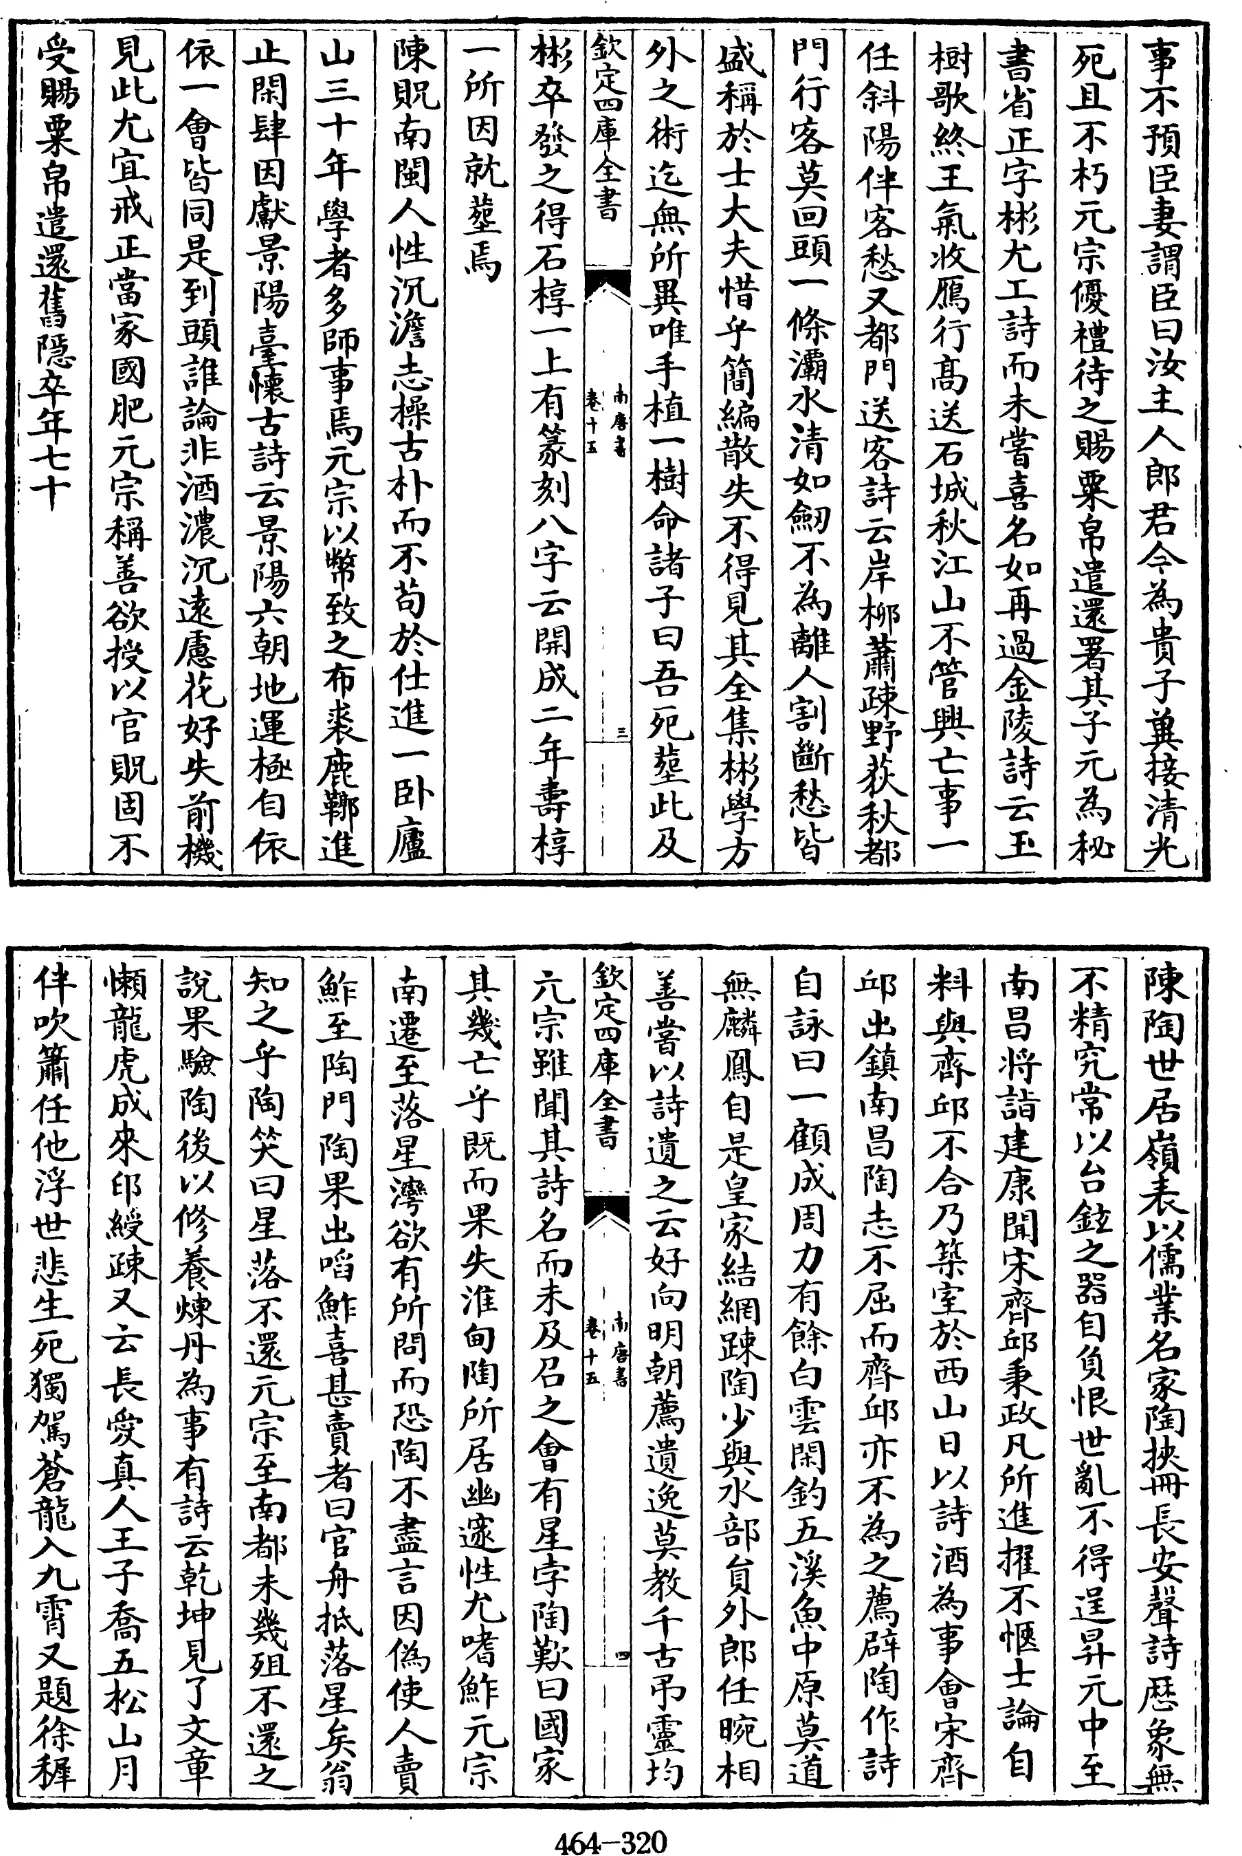 事不預臣妻謂臣曰汝主人郎君今為貴子冀接清光
死且不朽元宗優禮待之賜粟帛遣還署其子元為秘
書省正字彬尤工詩而未嘗喜名如再過金陵詩云玉
樹歌終王氣收雁行高送石城秋江山不管興亡事一
任斜陽伴客愁又都門送客詩云岸柳蕭疎野荻秋都
門行客莫回頭一條灞水清如劒不為離人割斷愁皆
盛稱於士大夫惜乎簡編散失不得見其全集彬學方
外之術迄無所異唯手植一樹命諸子曰吾死塟此及
欽定四庫全書
南唐書
卷十五
三
彬卒發之得石椁一上有篆刻八字云開成二年壽椁
一所因就塟焉
陳貺南閩人性沉澹志操古朴而不苟於仕進一卧廬
山三十年學者多師事焉元宗以幣致之布裘鹿鞹進
止閑肆因獻景陽臺懷古詩云景陽六朝地運極自依
依一會皆同是到頭誰論非酒濃沉遠慮花好失前機
見此尤宜戒正當家國肥元宗稱善欲授以官貺固不
受賜粟帛遣還舊隱卒年七十
陳陶世居嶺表以儒業名家陶挾冊長安聲詩厯象無
不精究常以台鉉之器自負恨世亂不得逞昇元中至
南昌將詣建康聞宋齊邱秉政凡所進擢不愜士論自
料與齊邱不合乃築室於西山日以詩酒為事會宋齊
邱出鎮南昌陶志不屈而齊邱亦不為之薦辟陶作詩
自詠曰一顧成周力有餘白雲閑釣五溪魚中原莫道
無麟鳳自是皇家結網踈陶少與水部員外郎任畹相
善嘗以詩遺之云好向明朝薦遺逸莫教千古弔靈均
欽定四庫全書
南唐書
卷十五
四
元宗雖聞其詩名而未及召之會有星孛陶歎曰國家
其幾亡乎既而果失淮甸陶所居幽邃性尤嗜鮓元宗
南遷至落星灣欲有所問而恐陶不盡言因偽使人賣
鮓至陶門陶果出啗鮓喜甚賣者曰官舟抵落星矣翁
知之乎陶笑曰星落不還元宗至南都未幾殂不還之
說果驗陶後以修養煉丹為事有詩云乾坤見了文章
懶龍虎成來印綬疎又云長愛真人王子喬五松山月
伴吹簫任他浮世悲生死獨駕蒼龍入九霄又題徐穉
464-320